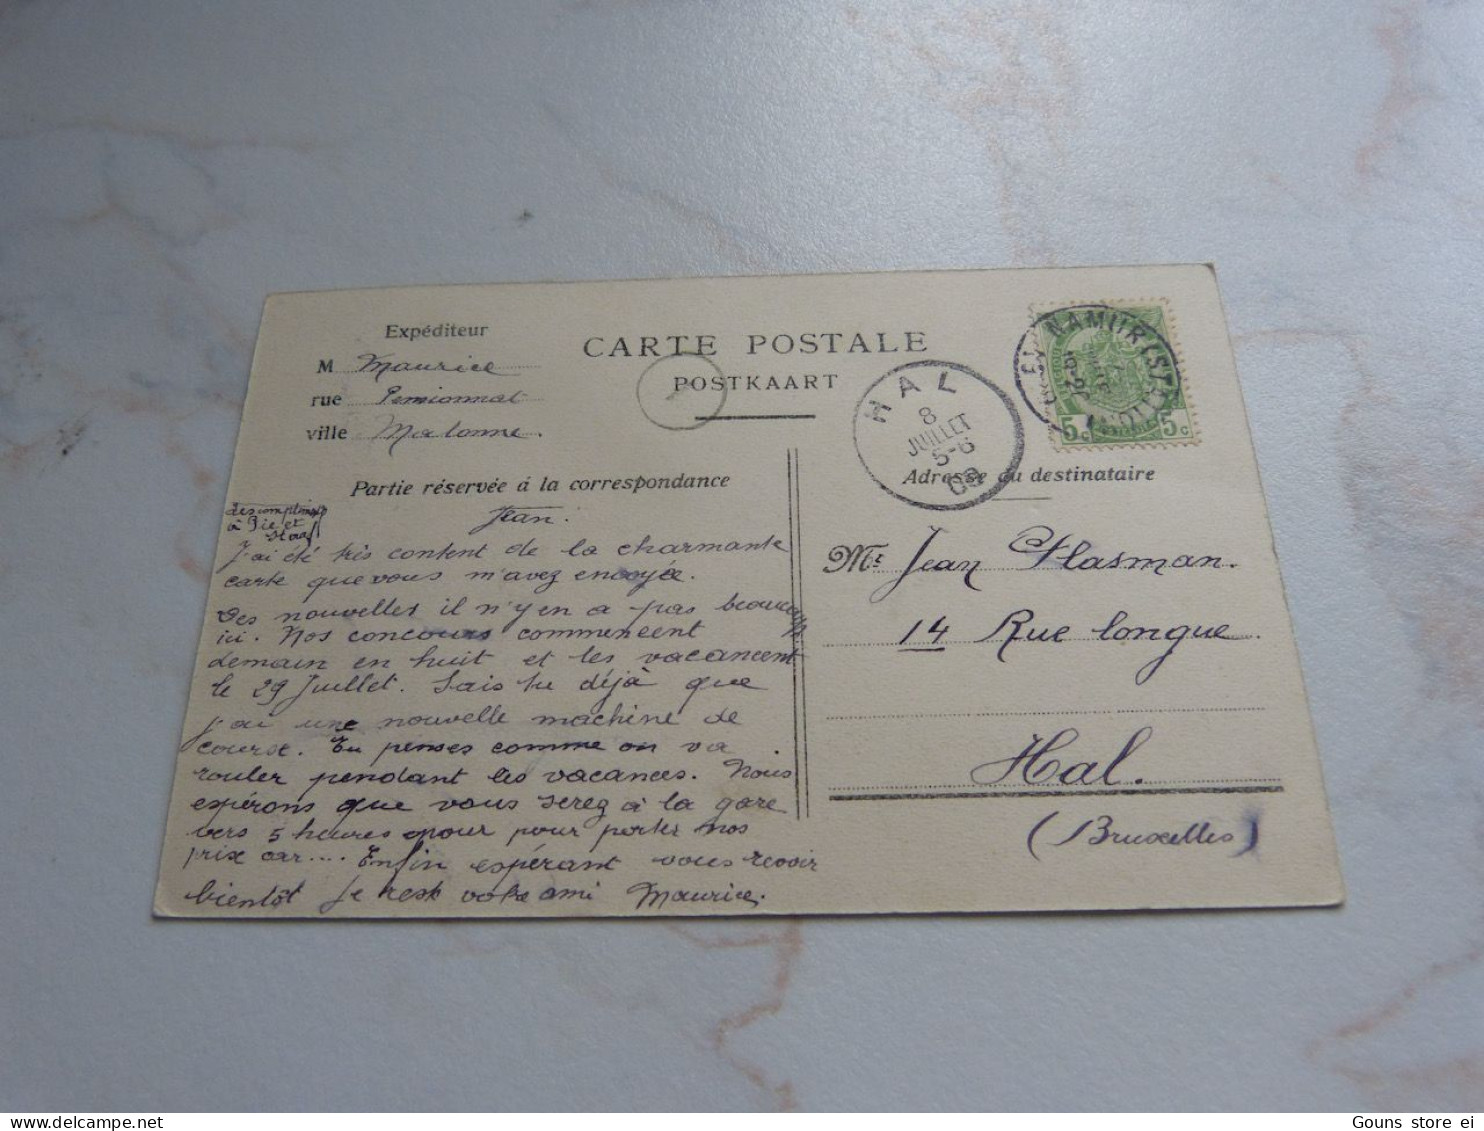 Expéditeur
M Maurice
rue Pensionnat
ville Malonne.
CARTE POSTALE
POSTKAART
HAL
8
JUILLET
5-6
09
NAMUR (STATION)
5c 5c
Partie réservée à la correspondance
Adresse du destinataire
à Pie et
Jean.
J'ai été très content de la charmante
carte que vous m'avez envoyée.
Des nouvelles il n'y en a pas beaucoup
ici. Nos concours commenceent
demain en huit et les vacancent
le 29 Juillet. Sais tu déjà que
j'ai une nouvelle machine de
course. Tu penses comme on va
rouler pendant les vacances. Nous
espérons que vous serez à la gare
vers 5 heures pour pour porter nos
prix car.... Enfin espérant vous revoir
bientôt je reste votre ami Maurice.
Mr. Jean Flasman.
14 Rue longue.
Hal.
(Bruxelles)
Gouns store ei